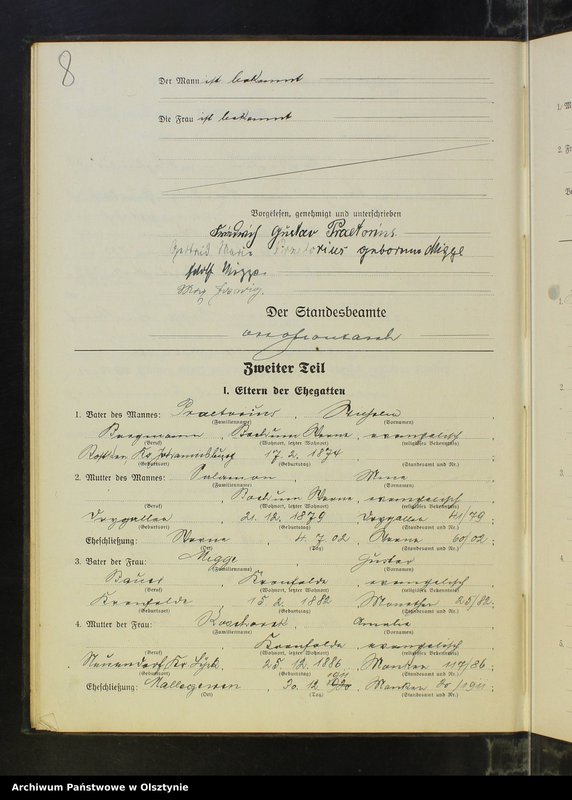 8
Der Mann ist bekannt
Die Frau ist bekannt
Vorgelesen, genehmigt und unterschrieben
Friedrich Gustav Praetorius
Gertrud Marie Praetorius geborene Migge
Adolf Migge
Der Standesbeamte
Zweiter Teil
I. Eltern der Ehegatten
1. Vater des Mannes: Praetorius, Wilhelm,
(Familienname) (Vornamen)
Bergmann, Bochum Werne, evangelisch
(Beruf) (Wohnort, letzter Wohnort) (religiöses Bekenntnis)
Kr. Johannisburg 17. 2. 1874
(Geburtsort) (Geburtstag) (Standesamt und Nr.)
2. Mutter des Mannes: Salamon, Mina,
(Familienname) (Vornamen)
Bochum Werne, evangelisch
(Beruf) (Wohnort, letzter Wohnort) (religiöses Bekenntnis)
Drygallen, 21. 12. 1879, Drygallen 41/79;
(Geburtsort) (Geburtstag) (Standesamt und Nr.)
Eheschließung: Werne, 4. 7. 02, Werne 60/02;
(Ort) (Tag) (Standesamt und Nr.)
3. Vater der Frau: Migge, Gustav,
(Familienname) (Vornamen)
Bauer, Kronfelde, evangelisch
(Beruf) (Wohnort, letzter Wohnort) (religiöses Bekenntnis)
Kronfelde, 15. 2. 1882, 25/82;
(Geburtsort) (Geburtstag) (Standesamt und Nr.)
4. Mutter der Frau: Amalie,
(Familienname) (Vornamen)
Kronfelde, evangelisch
(Beruf) (Wohnort, letzter Wohnort) (religiöses Bekenntnis)
Neuendorf Kr. Lyck, 25. 12. 1886, 117/86;
(Geburtsort) (Geburtstag) (Standesamt und Nr.)
1911
Eheschließung: 30. 12. 20/1911;
(Ort) (Tag) (Standesamt und Nr.)
Archiwum Państwowe w Olsztynie